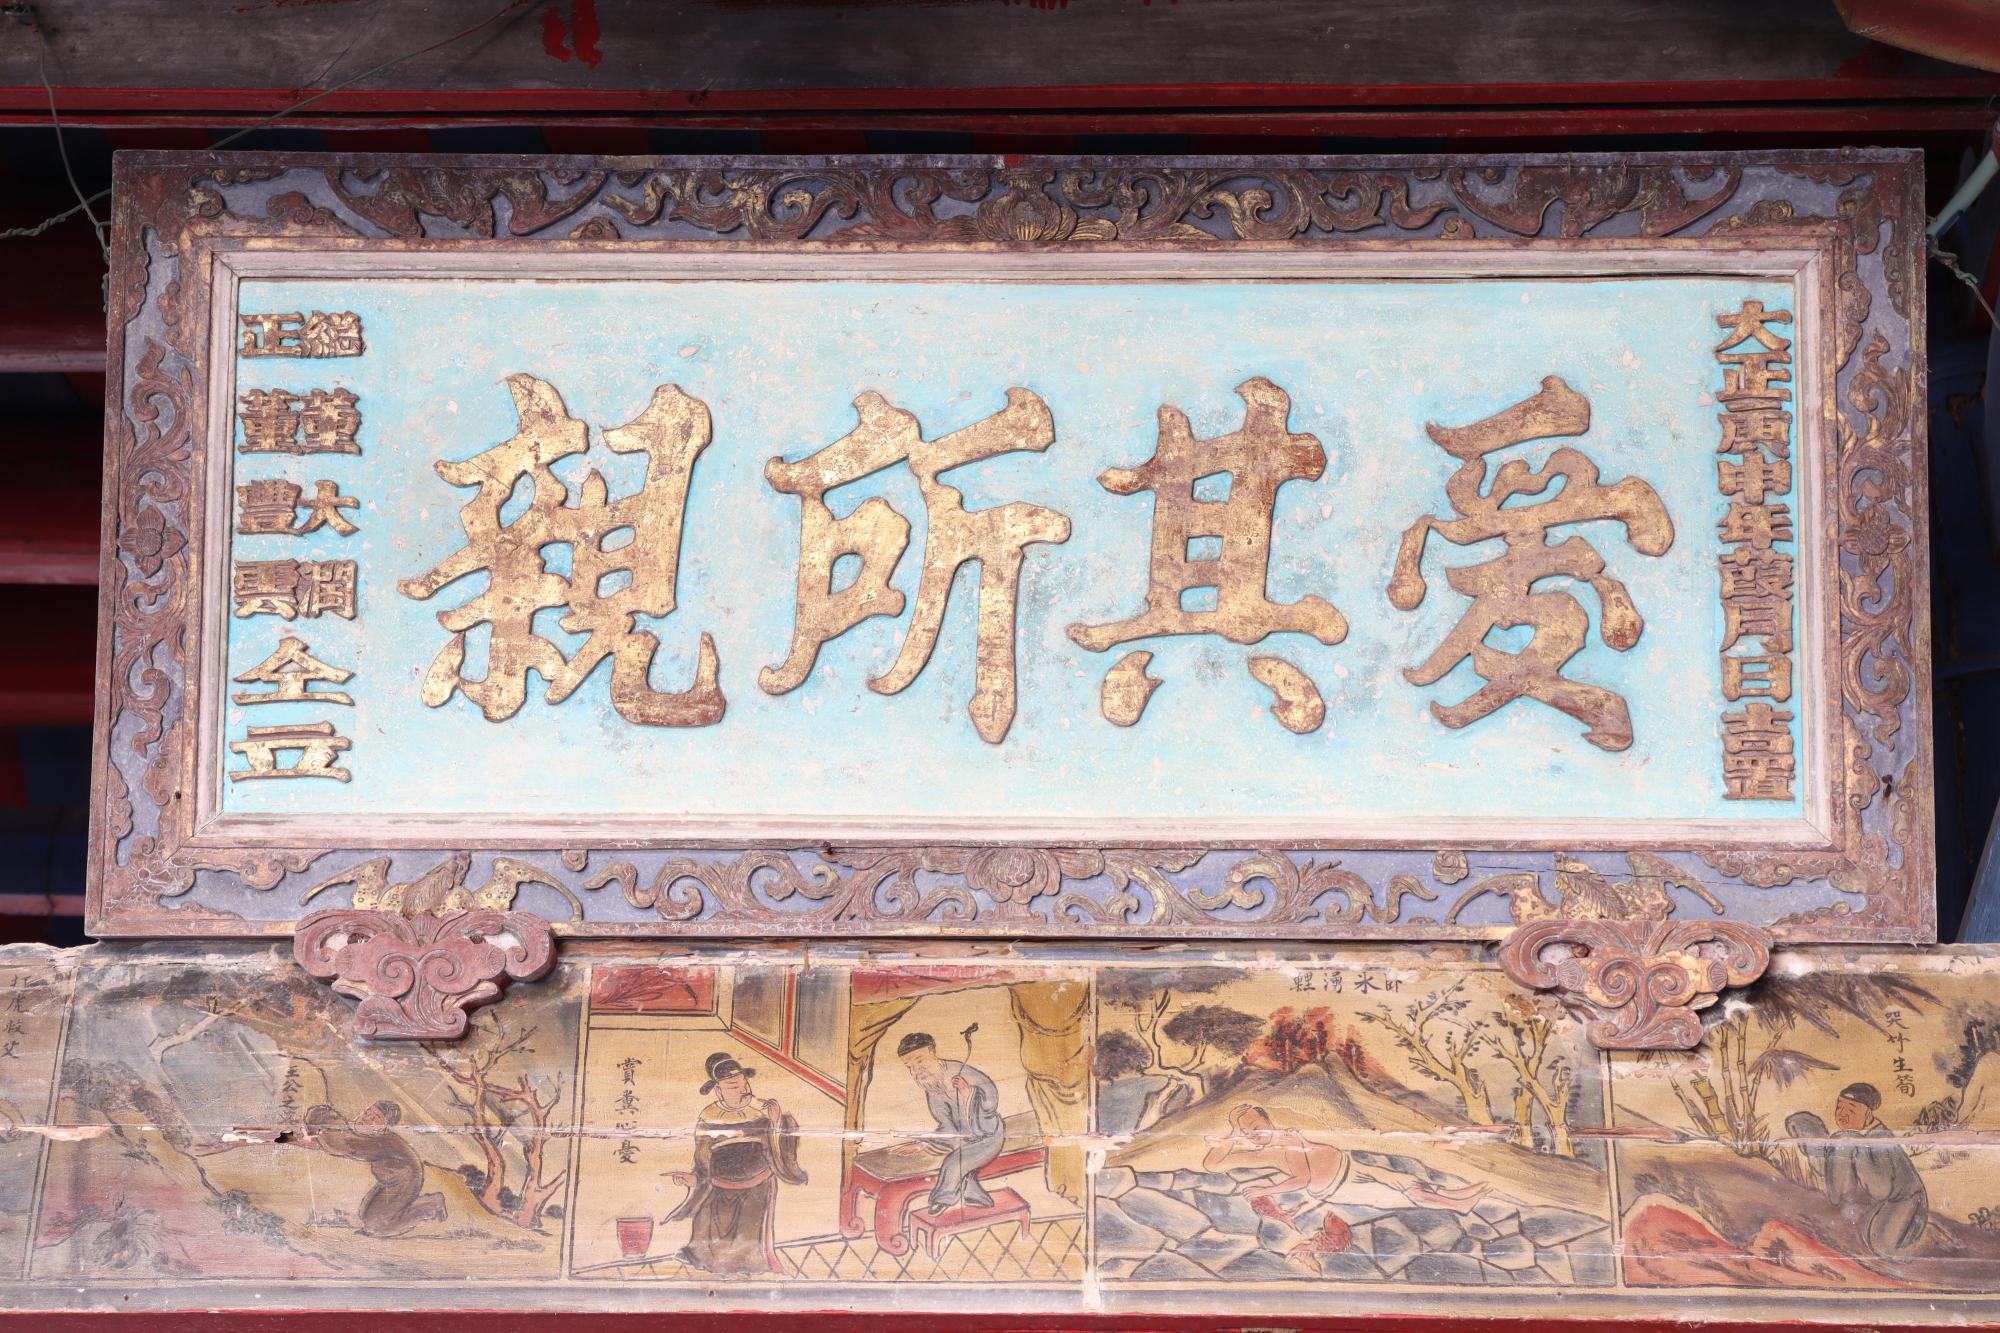 大正庚申年葭月日吉置
愛其所親
總董大潤
正董豐
仝立
哭竹生筍
臥氷湧鯉
賞糞心憂
王公之
虎救父